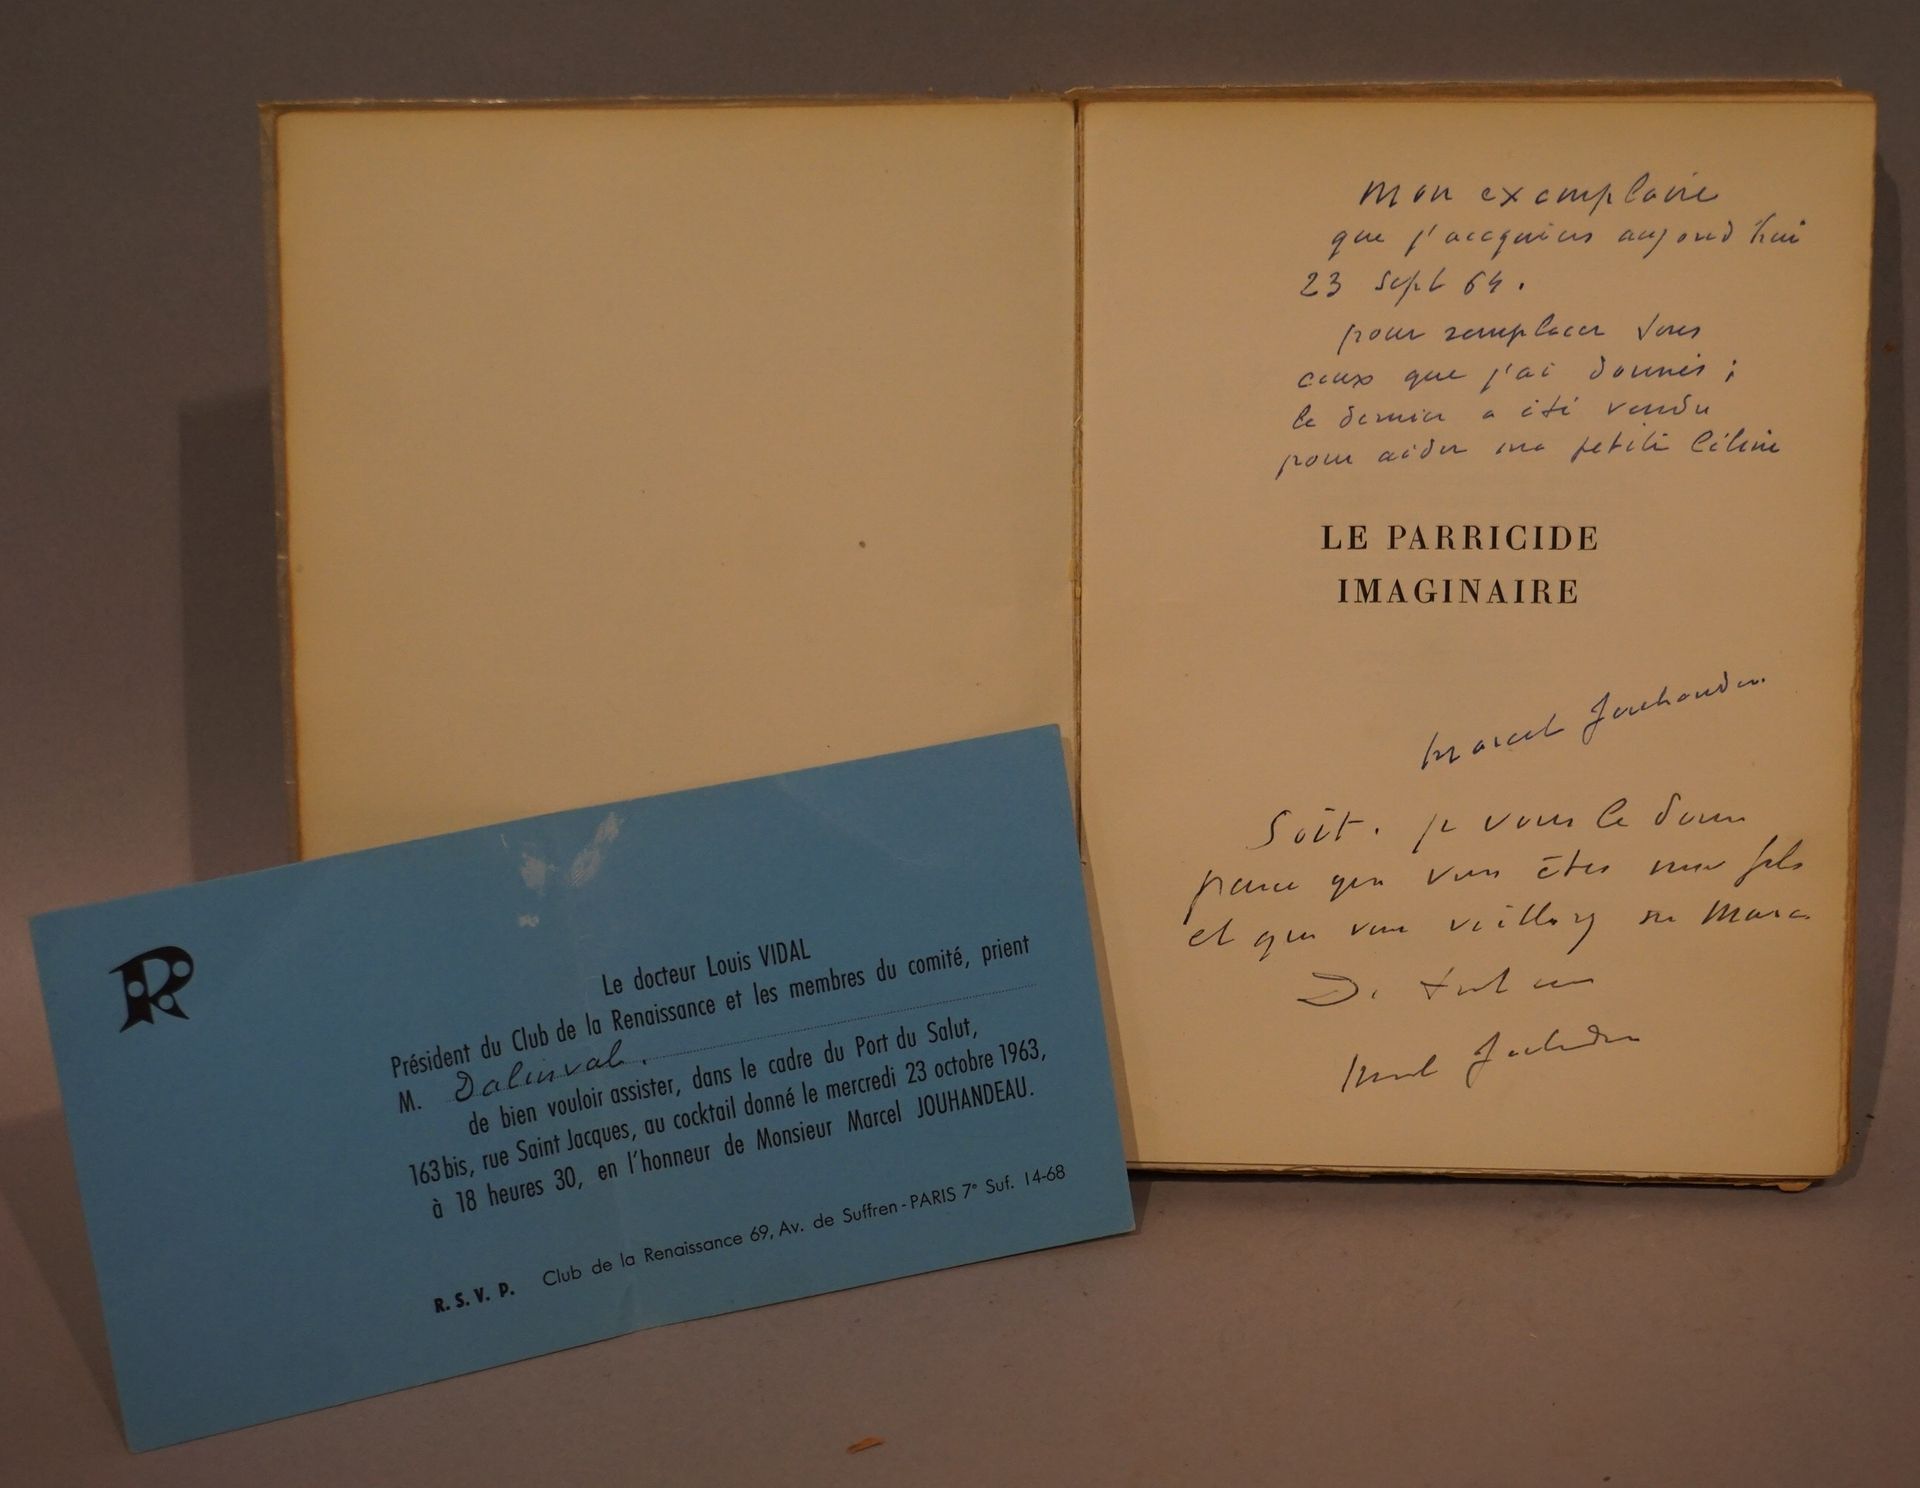 Mon exemplaire
que j'accquiers aujourd'hui
23 sept 64.
pour remplacer tous
ceux que j'ai donnés ;
le dernier a été vendu
pour aider ma petite Céline
LE PARRICIDE
IMAGINAIRE
Marcel Jouhandeau.
Soit. je vous le donne
parce que vous êtes mon fils
et que vous veillez sur Marc
Marcel Jouhandeau
R
Le docteur Louis VIDAL
Président du Club de la Renaissance et les membres du comité, prient
M. Dalinval.
de bien vouloir assister, dans le cadre du Port du Salut,
163 bis, rue Saint Jacques, au cocktail donné le mercredi 23 octobre 1963,
à 18 heures 30, en l'honneur de Monsieur Marcel JOUHANDEAU.
R. S. V. P. Club de la Renaissance 69, Av. de Suffren - PARIS 7° Suf. 14-68